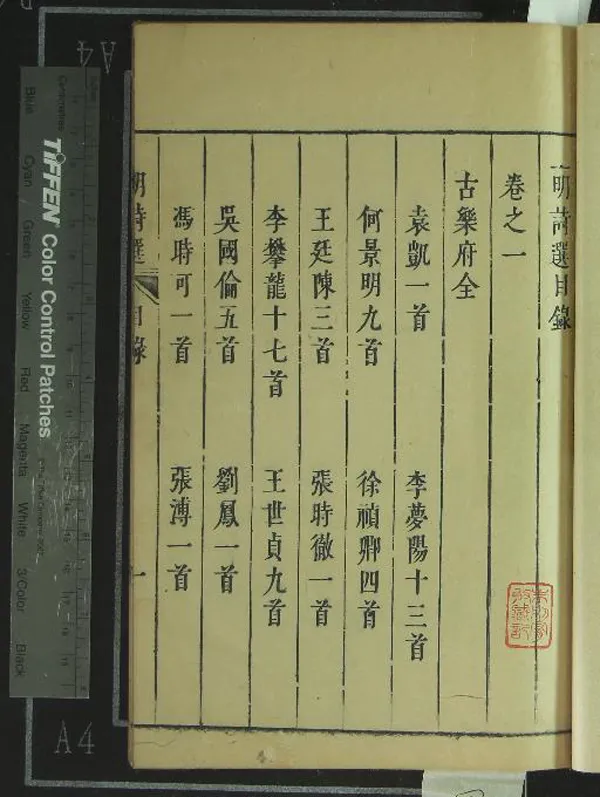 明詩選目錄
卷之一
古樂府全
袁凱一首 李夢陽十三首
何景明九首 徐禎卿四首
王廷陳三首 張時徹一首
李攀龍十七首 王世貞九首
吳國倫五首 劉鳳一首
馮時可一首 張溥一首
明詩選 目錄 一
TIFFEN Color Control Patches
Blue Cyan Green Yellow Red Magenta White 3/Color Black
A4
A4